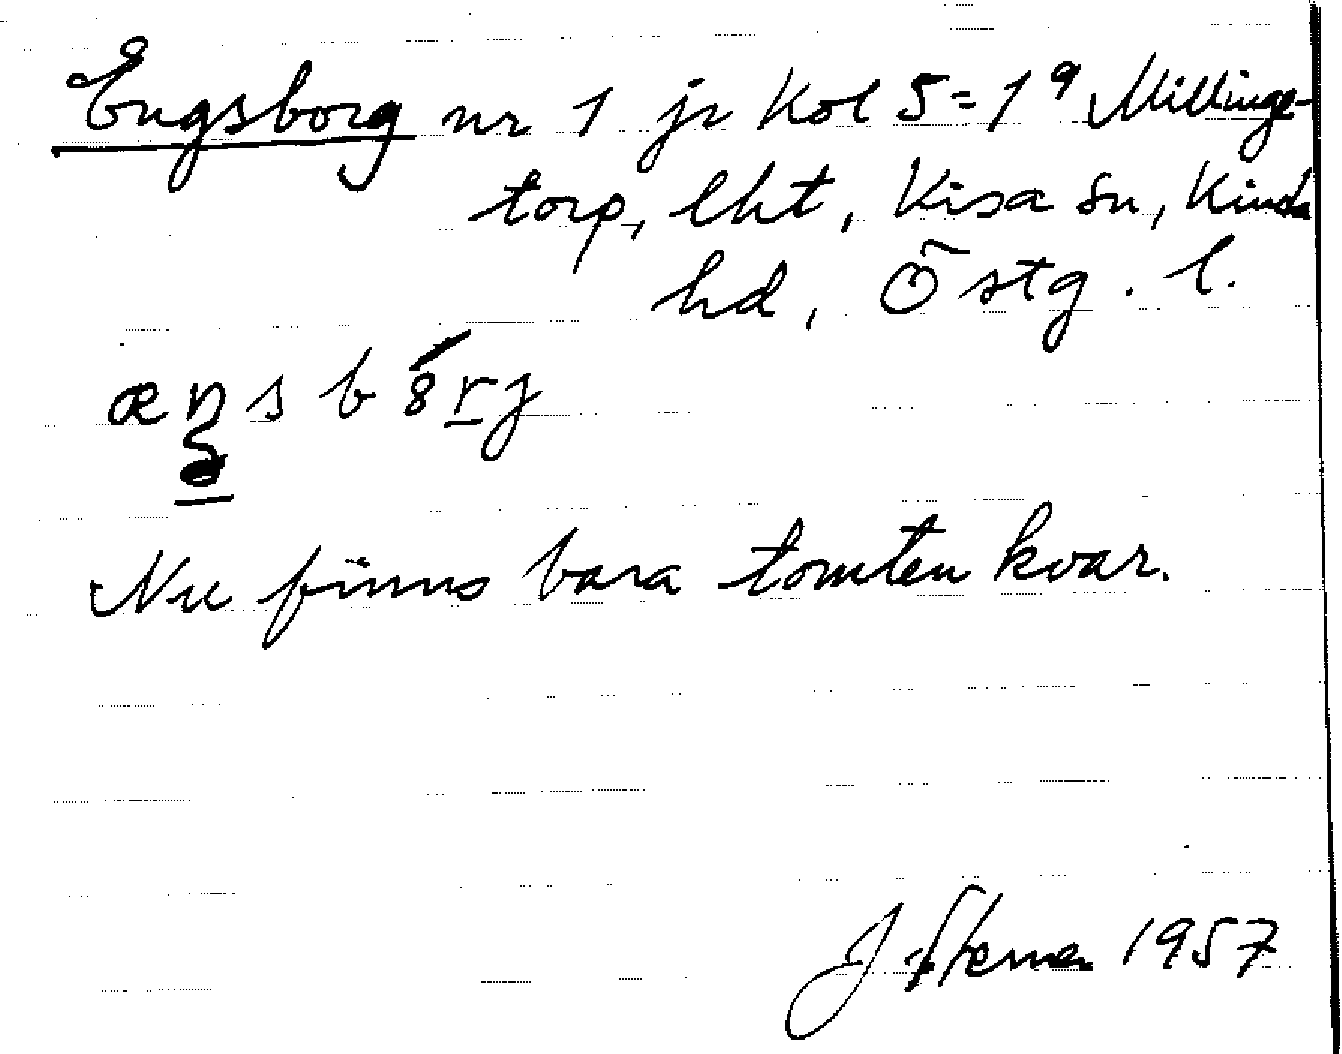 Engsborg nr 1 jr Kol 5 = 1⁹ Millinge-
torp, lht, Kisa sn, Kinda
hd, Östg. l.
Nu finns bara tomten kvar.
J Sterner 1957